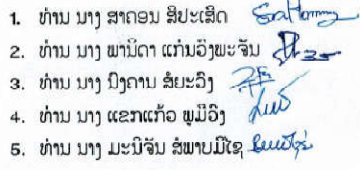 1. ທ່ານ ນາງ ສາຄອນ ສີປະເສີດ
2. ທ່ານ ນາງ ພານິດາ ແກ່ນວົງພະຈັນ
3. ທ່ານ ນາງ ປິງຄານ ສໍຍະວົງ
4. ທ່ານ ນາງ ແຂກແກ້ວ ພູມີວົງ
5. ທ່ານ ນາງ ມະນີຈັນ ສໍພາບມີໄຊ